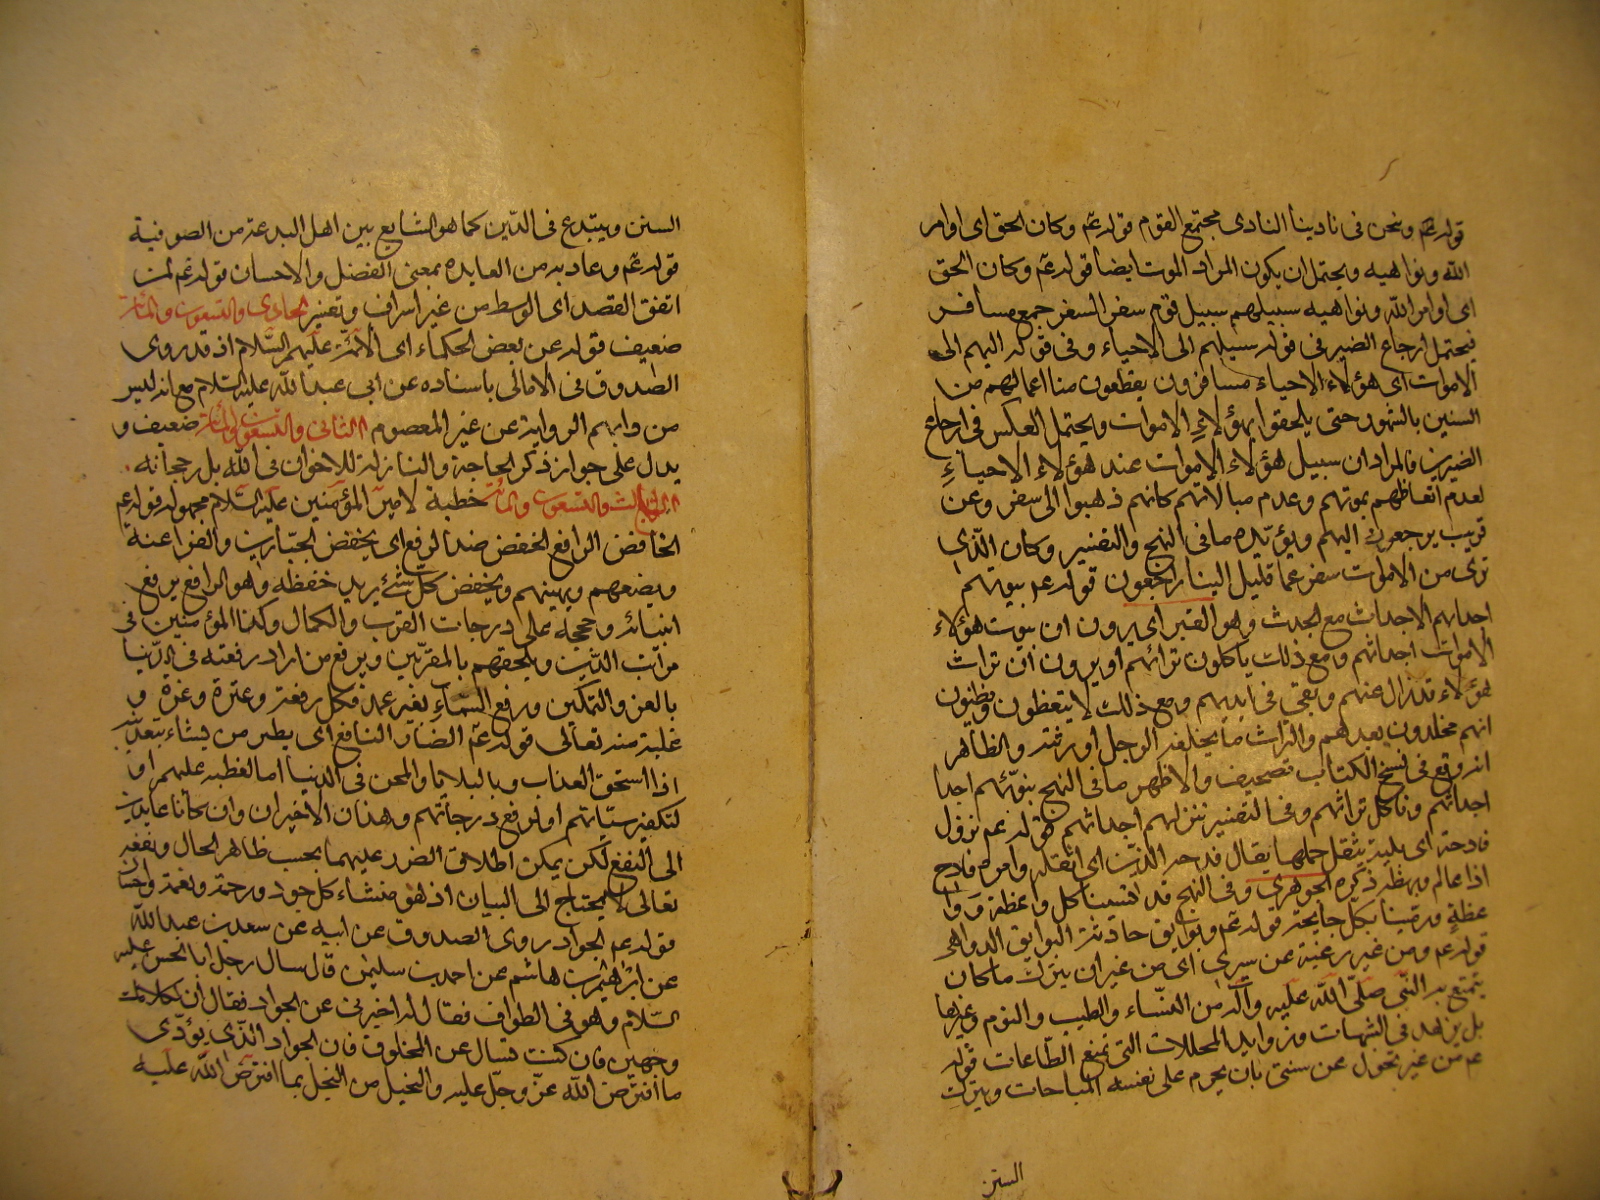 قوله عم ونحن فى نادينا النادى مجتمع القوم قوله عم وكان الحق اى اوامر
الله ونواهيه ويحتمل ان يكون المراد الموت ايضا قوله عم وكان الحق
اى اوامر الله ونواهيه سبيلهم سبيل قوم سفر السفر جمع مسافر
فيحتمل ارجاع الضمير فى قوله سبيلهم الى الاحياء وفى قوله اليهم الى
الاموات اى هؤلاء الاحياء مسافرون يقطعون منازل اعمارهم من
السنين بالشهور حتى يلحقوا بهؤلاء الاموات ويحتمل العكس فى ارجاع
الضميرين فالمراد ان سبيل هؤلاء الاموات عند هؤلاء الاحياء
لعدم اتعاظهم بموتهم وعدم مبالاتهم كانهم ذهبوا الى سفر وعن
قريب يرجعون اليهم ويؤيده ما فى النهج والتفسير وكان الذى
نرى من الاموات سفر عما قليل الينا راجعون قوله عم بيوتهم
اجداثهم الاجداث جمع الجدث وهو القبر اى يرون ان بيوت هؤلاء
الاموات اجداثهم ومع ذلك ياكلون تراثهم او يرون ان تراث
هؤلاء قد زال عنهم وبقى فى ايديهم ومع ذلك لا يتعظون ويظنون
انهم مخلدون بعدهم والتراث ما يخلفه الرجل لورثته والظاهر
انه وقع فى نسخ الكتاب تصحيف والاظهر ما فى النهج نبوئهم اجدا
اجداثهم وناكل تراثهم وفى التفسير ننزلهم اجداثهم قوله عم نزول
فادحة اى بلية يثقل حملها يقال فدحه الدين اى اثقله وامر فادح
اذا عاله وبهظه ذكره الجوهرى وفى النهج قد نسينا كل واعظة و وا
عظة ورمينا بكل جايحة قوله عم وبوايق حادثة البوايق الدواهى
قوله عم ومن غير رغبة عن سيرتى اى من غير ان يترك ما كان
يتمتع به النبى صلى الله عليه وآله من النساء والطيب والنوم وغيرها
بل يزهد فى الشبهات وزوايد المحللات التى تمنع الطاعات قوله
عم من غير تحول عن سنتى بان يحرم على نفسه المباحات ويترك
السنن
السنن ويبتدع فى الدين كما هو الشايع بين اهل البدعة من الصوفية
قوله عم وعاد به من العايدة بمعنى الفضل والاحسان قوله عم لمن
اتفق القصد اى الوسط من غير اسراف وتقتير الحادى والتسعون والمائة
ضعيف قوله عن بعض الحكماء اى الائمة عليهم السلام اذ قد روى
الصدوق فى الامالى باسناده عن ابى عبد الله عليه السلام مع انه ليس
من دابهم الرواية عن غير المعصوم الثانى والتسعون والمائة ضعيف و
يدل على جواز ذكر الحاجة والنازلة للاخوان فى الله بل رجحانه
الثالث والتسعون والمائة خطبة لامير المؤمنين عليه السلام مجهول قوله عم
الخافض الرافع الخفض ضد الرفع اى يخفض الجبارين والفراعنة
ويضعهم ويهينهم ويخفض كل شئ يريد خفضه وهو الرافع يرفع
انبيائه وحججه على درجات القرب والكمال وكذا المؤمنين فى
مراتب الدين ويلحقهم بالمقربين ويرفع من اراد رفعته فى الدنيا
بالعز والتمكين ورفع السماء بغير عمد فكل رفعة وعزة وغزة و
غلبة منه تعالى قوله عم الضار النافع اى يضر من يشاء بتعذيبه
اذا استحق العذاب وبالبلايا والمحن فى الدنيا اما لغضبه عليهم او
لتكفير سيئاتهم او لرفع درجاتهم وهذان الاخيران وان كانا عايدين
الى النفع لكن يمكن اطلاق الضرر عليهما بحسب ظاهر الحال ونفعه
تعالى لا يحتاج الى البيان اذ هو منشاء كل جود ورحمة ونعمة واحسان
قوله عم الجواد روى الصدوق عن ابيه عن سعد بن عبد الله
عن ابراهيم بن هاشم عن احمد بن سليمان قال سال رجل ابا الحسن عليه
السلام وهو فى الطواف فقال له اخبرنى عن الجواد فقال ان لكلامك
وجهين فان كنت تسال عن المخلوق فان الجواد الذى يؤدى
ما افترض الله عز وجل عليه والبخيل من البخل بما افترض الله عليه